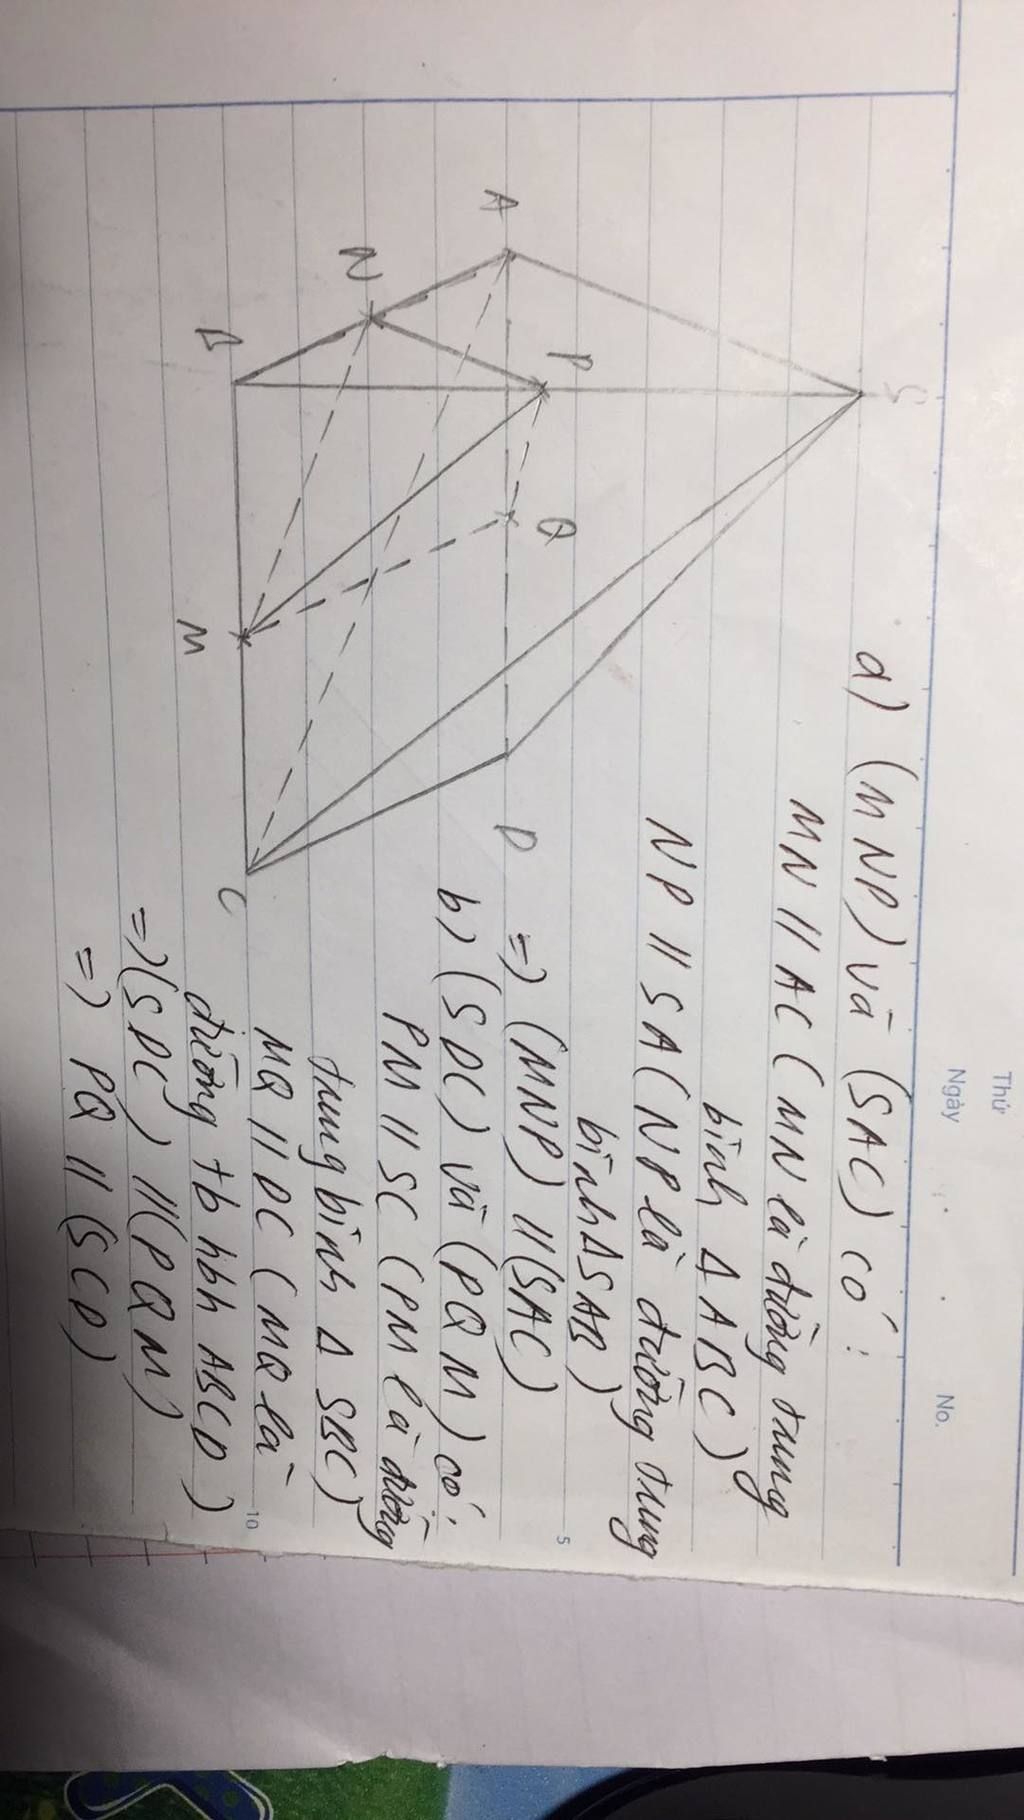 Thứ
Ngày
No.
S
A
P
Q
N
D
B
M
C
a) (MNP) và (SAC) có :
MN // AC ( MN là đường trung
bình Δ ABC)
NP // SA ( NP là đường trung
bình Δ SAB)
=> (MNP) // (SAC)
5
b) (SDC) và (PQM) có :
PM // SC (PM là đường
trung bình Δ SBC)
MQ // DC ( MQ là
đường tb hbh ABCD)
10
=> (SDC) // (PQM)
=> PQ // (SCD)